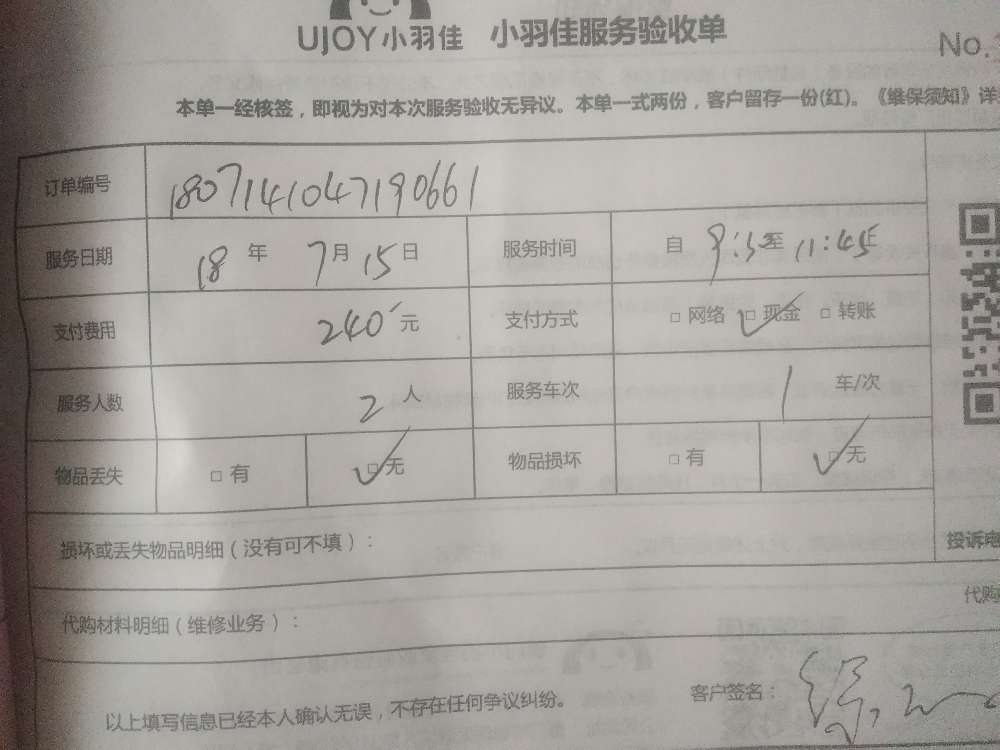 UJOY小羽佳 小羽佳服务验收单
No.
本单一经核签，即视为对本次服务验收无异议。本单一式两份，客户留存一份(红)。《维保须知》详
订单编号 1807141047190661
服务日期 18 年 7 月 15 日 服务时间 自 9:3 至 11:45
支付费用 240 元 支付方式 □ 网络 □ 现金 □ 转账
服务人数 2 人 服务车次 1 车/次
物品丢失 □ 有 □ 无 物品损坏 □ 有 □ 无
损坏或丢失物品明细（没有可不填）：
投诉电
代购材料明细（维修业务）：
代购
以上填写信息已经本人确认无误，不存在任何争议纠纷。
客户签名：